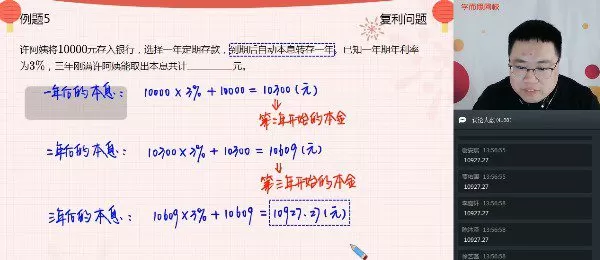 例题5
复利问题
学而思网校
许阿姨将10000元存入银行，选择一年定期存款，到期后自动本息转存一年，已知一年期年利率
为3%，三年刚满许阿姨能取出本息共计________元。
一年后的本息：10000×3%+10000=10300(元)
第二年开始的本金
二年后的本息：10300×3%+10300=10609(元)
第三年开始的本金
三年后的本息：10609×3%+10609=10927.27(元)
13:56:55
10927.27
13:56:55
10927.27
13:56:58
10927.27
13:56:58
10927.27